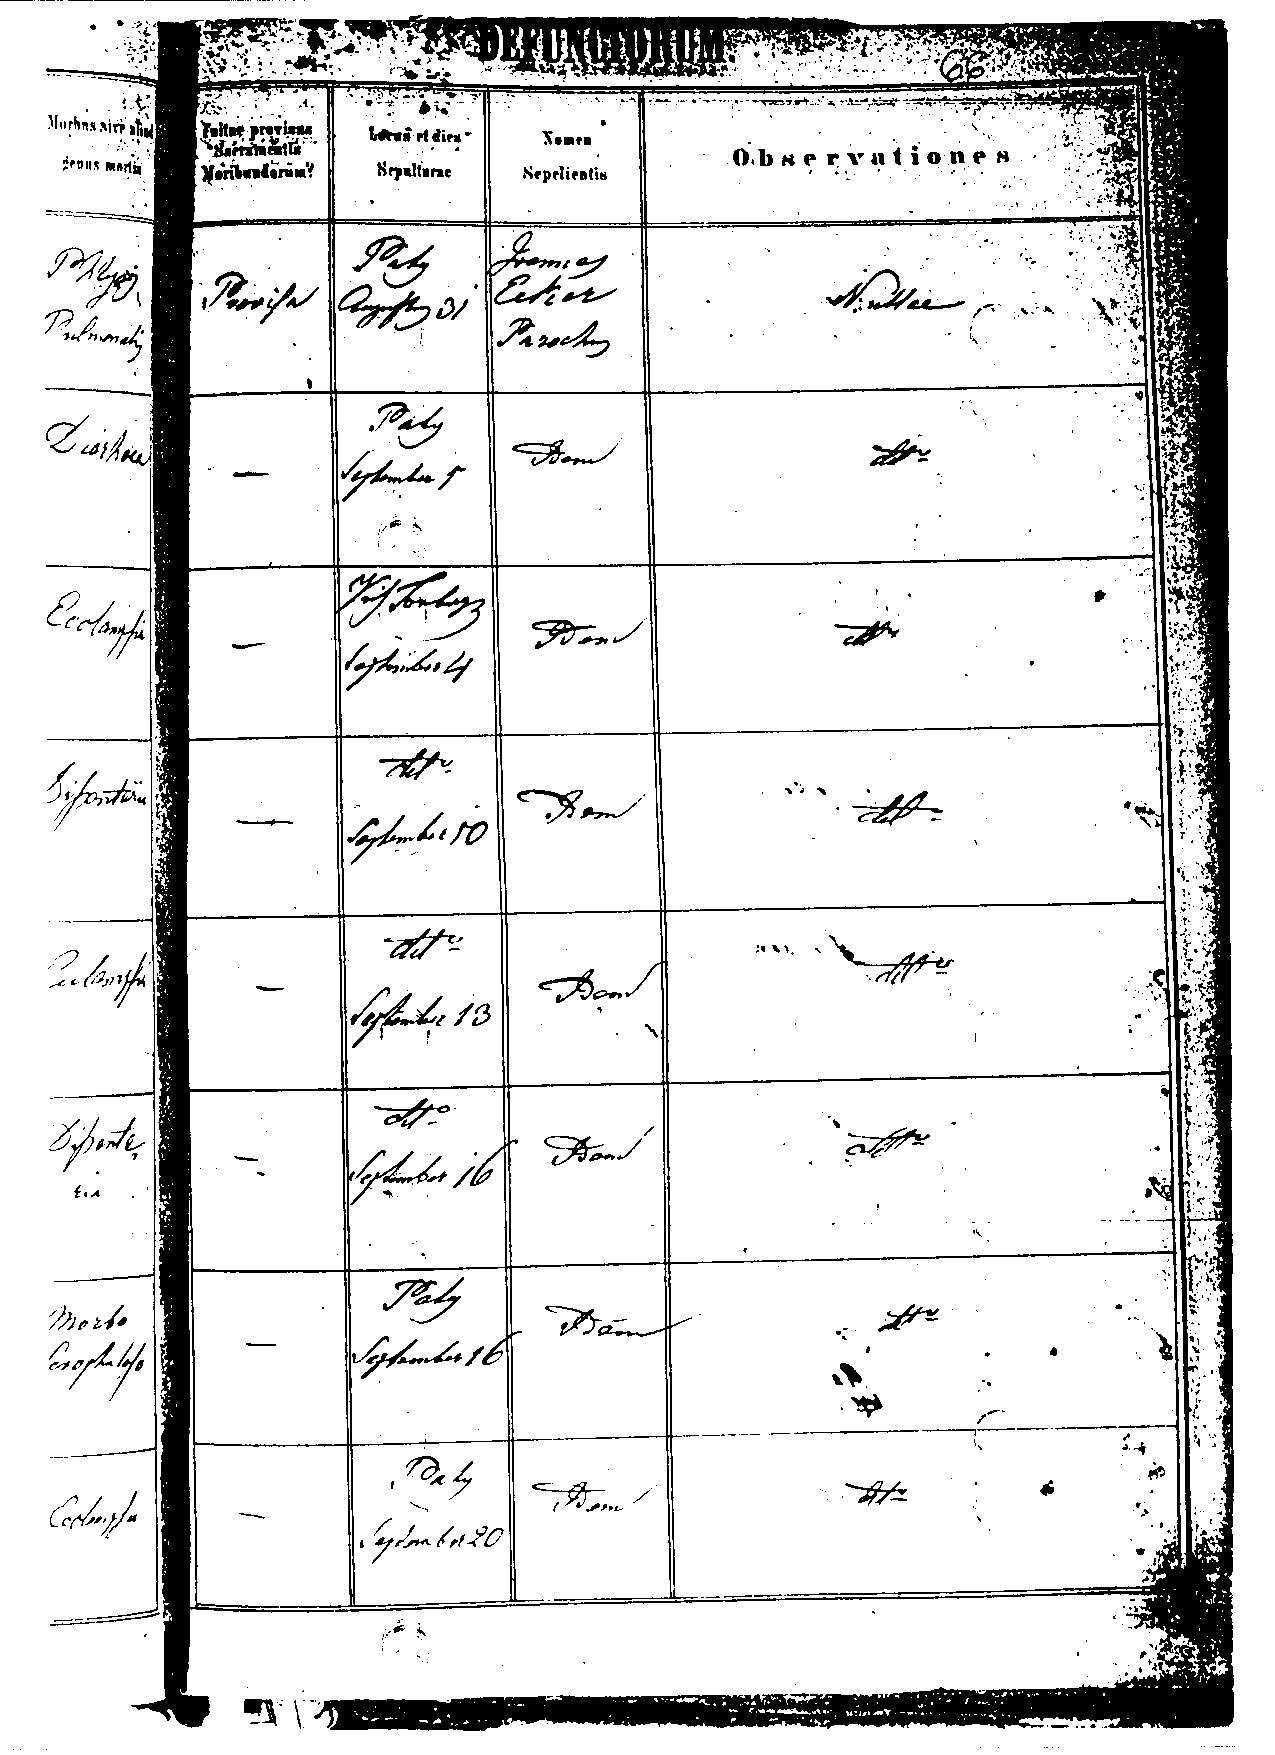 DEFUNCTORUM
66
Morbus sive aliud
genus mortis
Fuitne provisus
Sacramentis
Moribundorum?
Locus et dies
Sepulturae
Nomen
Sepelientis
Observationes
Pulmonalis
Provisa
Paty
Augusty 31
Joannes
Ecker
Parochus
Nullae
Diarhoea
—
Paty
September 5
Idem
dtto
Ecclampsia
—
September 4
Idem
dtto
—
dtto
September 10
Idem
dtto
Ecclampsia
—
dtto
September 13
Idem
dtto
—
dtto
September 16
Idem
dtto
Morbo
—
Paty
September 16
Idem
dtto
Ecclampsia
—
Paty
September 20
Idem
dtto